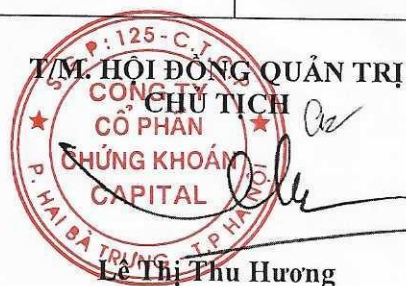 T/M. HỘI ĐỒNG QUẢN TRỊ
CHỦ TỊCH
S.G.P: 125-C.T.C.P
CÔNG TY
CỔ PHẦN
CHỨNG KHOÁN
CAPITAL
P. HAI BÀ TRƯNG - T.P HÀ NỘI
Lê Thị Thu Hương